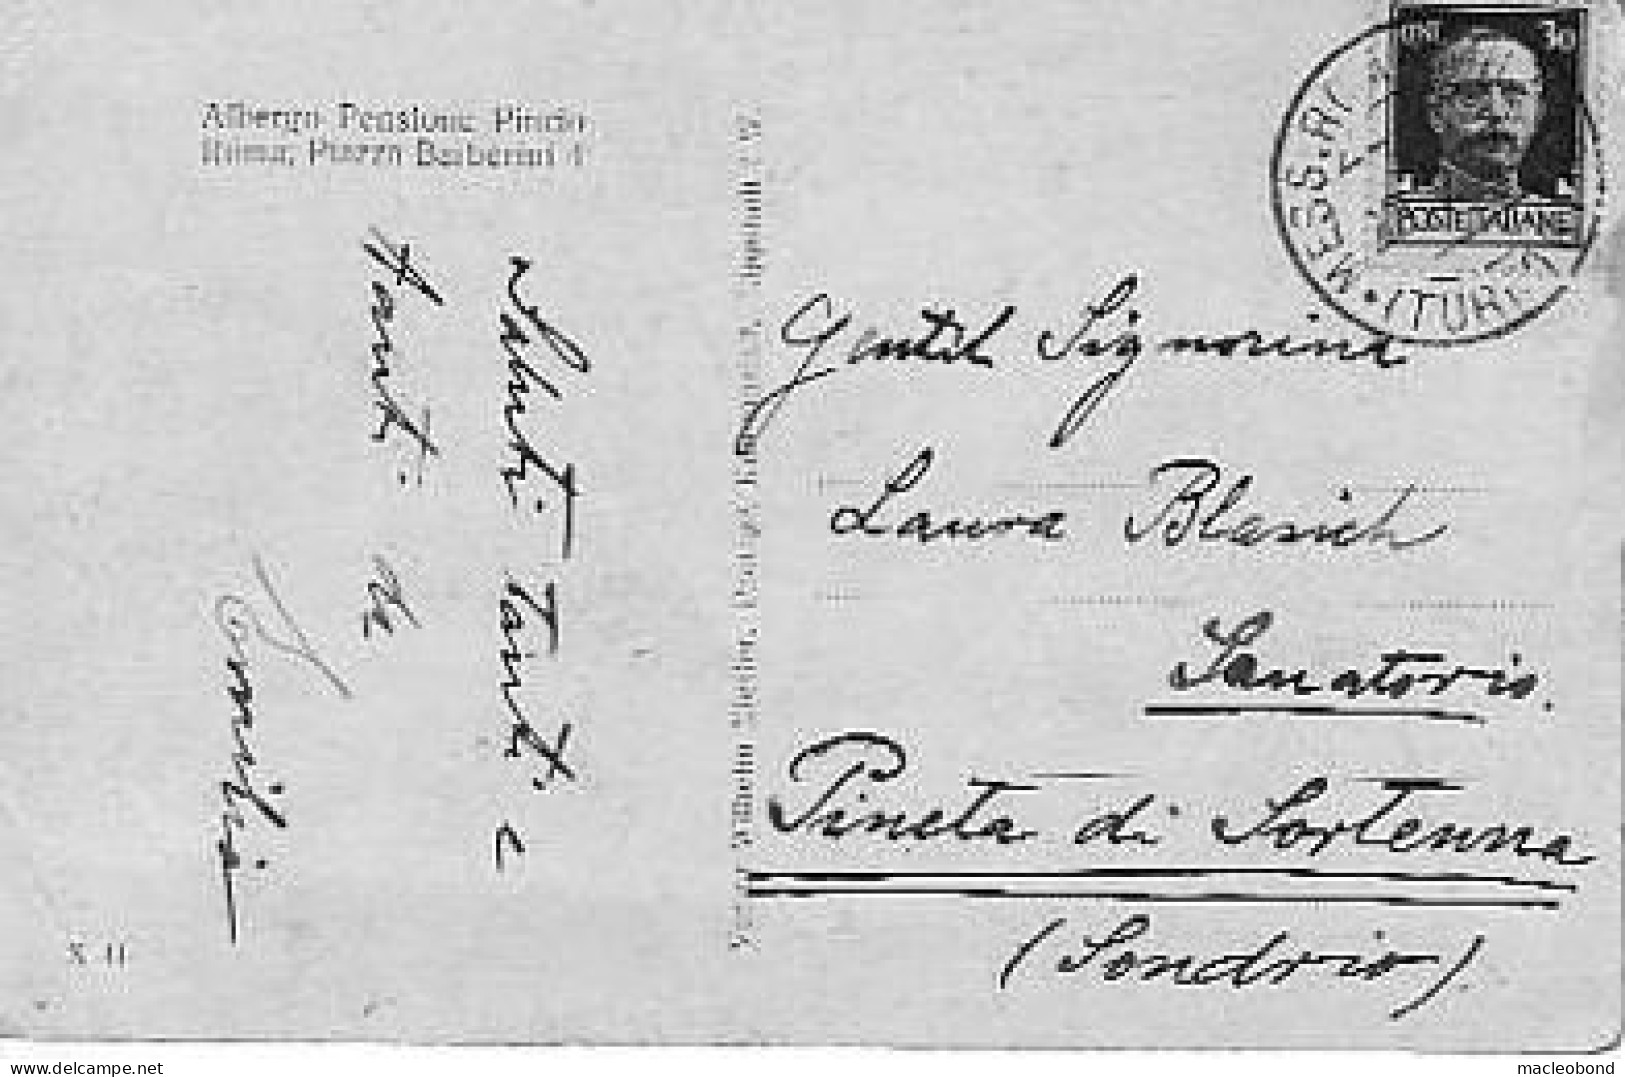 Albergo Pensione Pincio
Roma, Piazza Barberini
Saluti Tanti e
tanti da
Emilia
S 11
CENT 30
POSTE ITALIANE
MESS.RI
(TURA
Gentil Signorina
Laura Blasich
Sanatorio.
Pineta di Sortenna
(Sondrio)
delcampe.net
macleobond